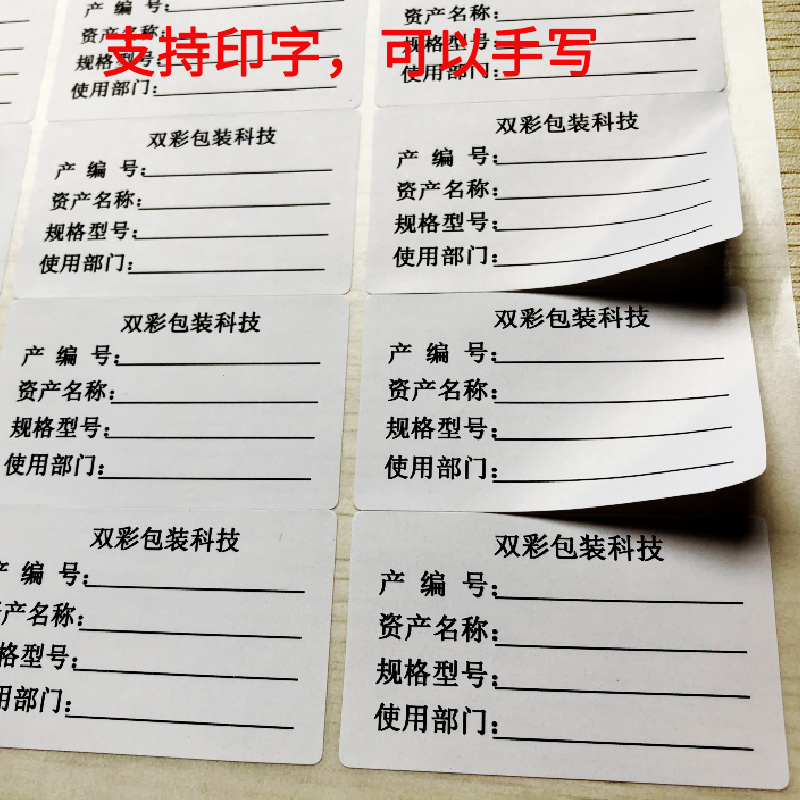 支持印字，可以手写
产 编 号:
资产名称:
规格型号:
使用部门:
资产名称:
规格型号:
使用部门:
双彩包装科技
产 编 号:
资产名称:
规格型号:
使用部门:
双彩包装科技
产 编 号:
资产名称:
规格型号:
使用部门:
双彩包装科技
产 编 号:
资产名称:
规格型号:
使用部门:
双彩包装科技
产 编 号:
资产名称:
规格型号:
使用部门:
双彩包装科技
产 编 号:
产名称:
格型号:
用部门:
双彩包装科技
产 编 号:
资产名称:
规格型号:
使用部门: